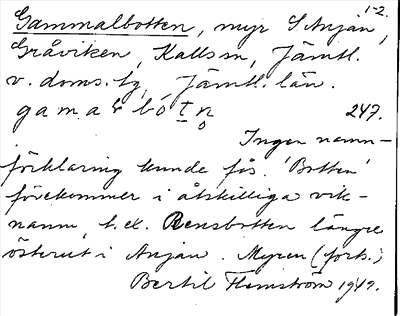 1-2.
Gammalbotten, myr S. Anjan,
Gråviken, Kalls sn, Jämtl.
v. doms. tg, Jämtl. län.
247.
Ingen namn-
förklaring kunde fås. 'Botten'
förekommer i åtskilliga vik-
namn, t. ex. Rensbotten längre
österut i Anjan. Myren (forts.)
Bertil Flemström 1949.